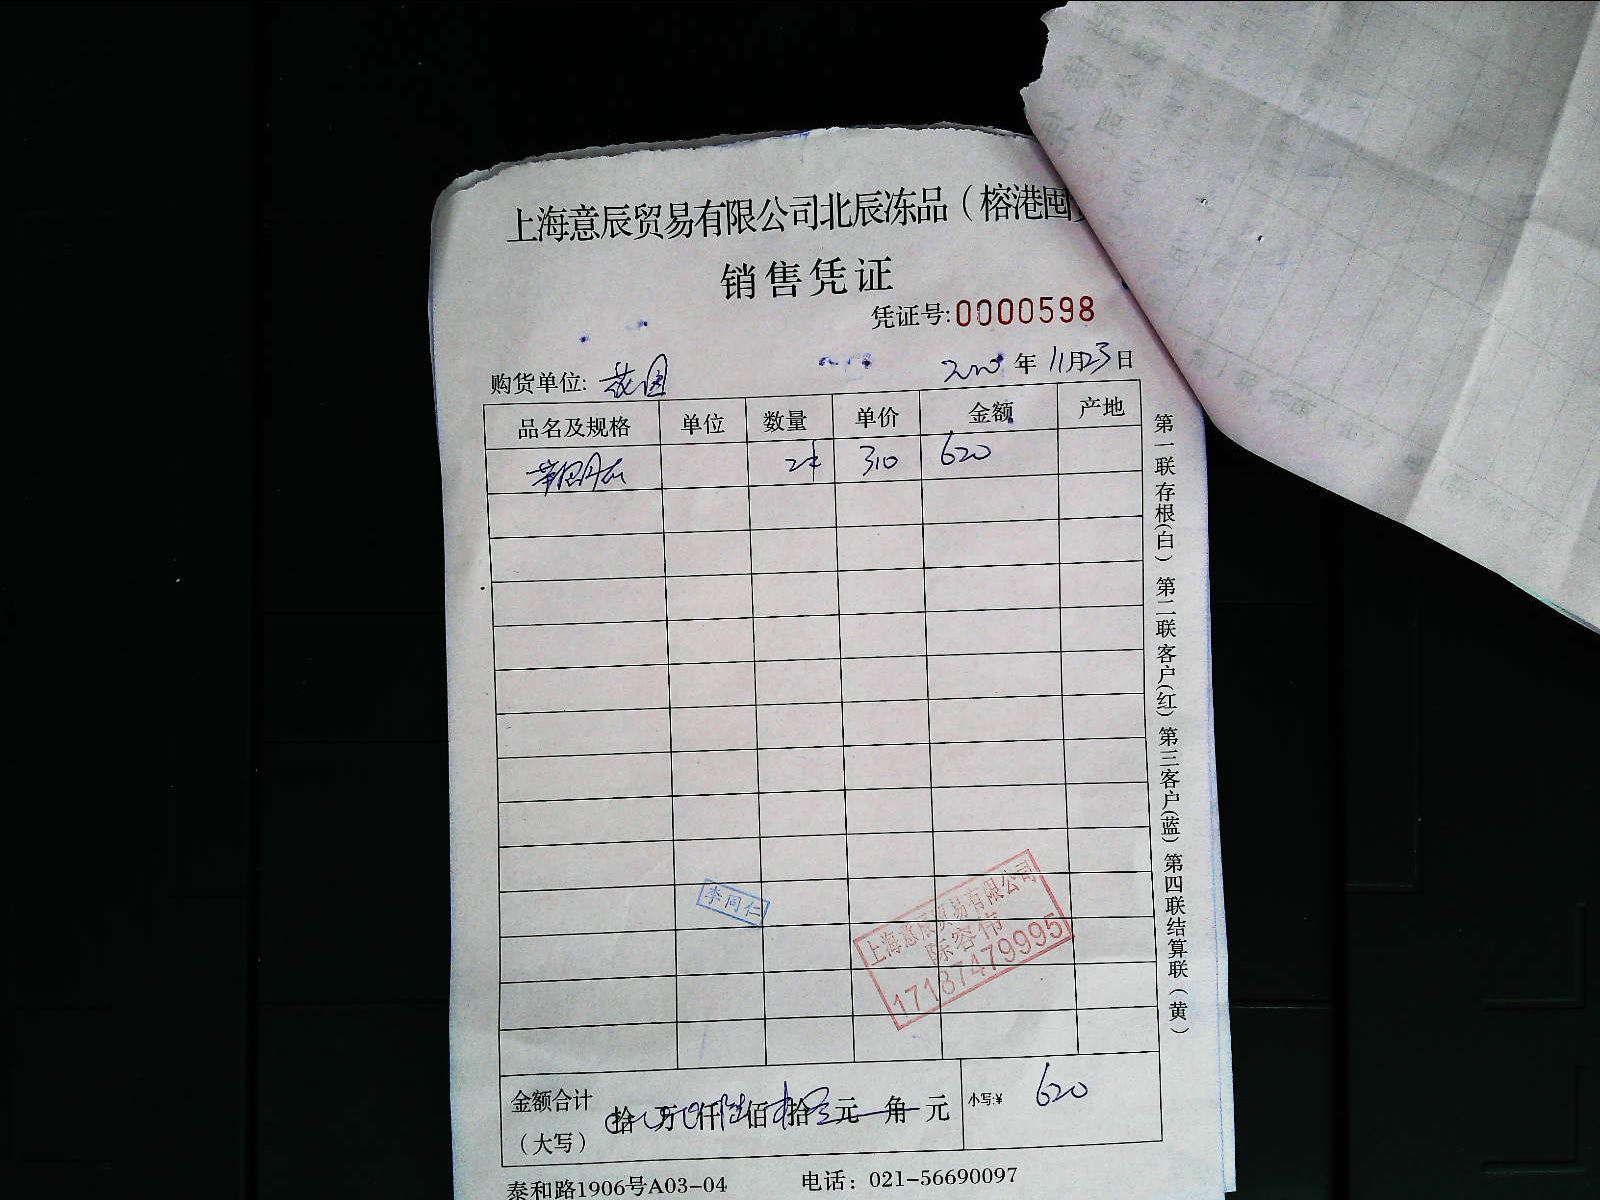 上海意辰贸易有限公司北辰冻品（榕港囤
销售凭证
凭证号:0000598
购货单位: 花园 2020年11月23日
品名及规格 单位 数量 单价 金额 产地
2件 310 620
李同仁
上海意辰贸易有限公司
陈容伟
17187479995
金额合计（大写） 拾 万 仟 陆 佰 拾 元 角 元 小写:¥ 620
泰和路1906号A03-04 电话：021-56690097
第一联存根(白) 第二联客户(红) 第三客户(蓝) 第四联结算联(黄)